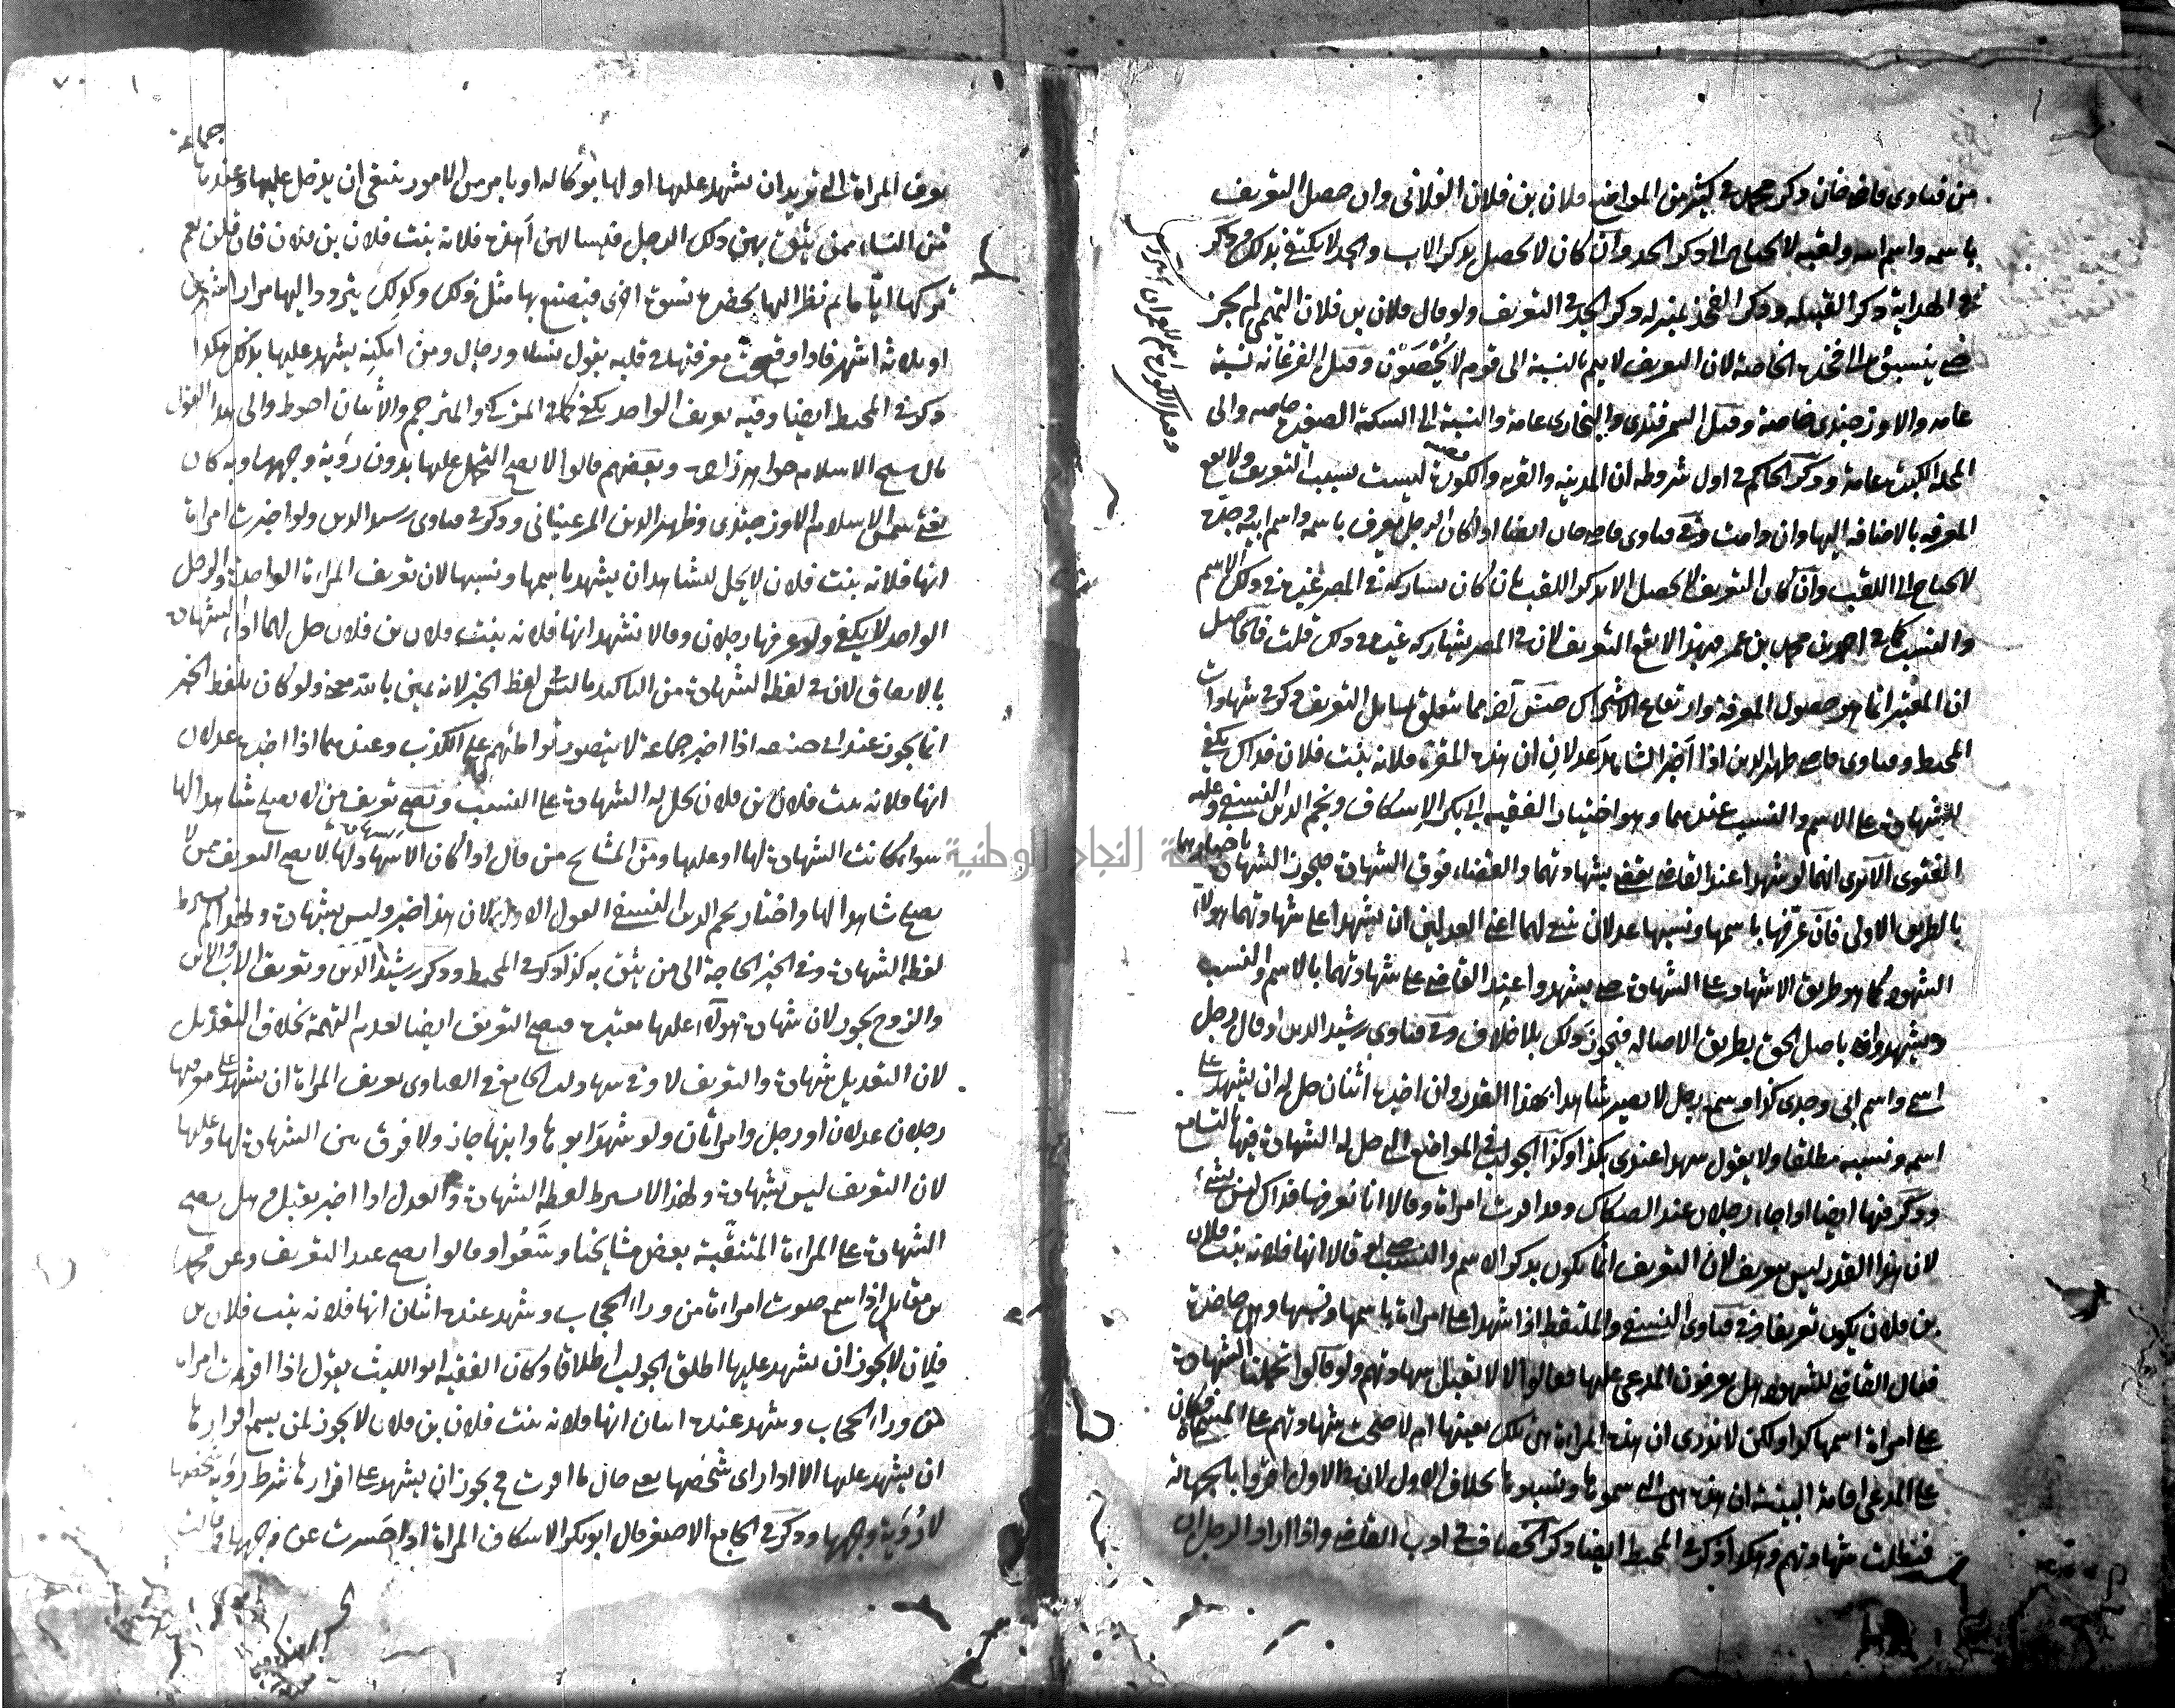 من فتاوى قاضيخان وذكر محمد في كثير من المواضع فلان بن فلان الفلاني وان حصل التعريف
باسمه واسم ابيه ولقبه لا يحتاج الى ذكر الجد وان كان لا يحصل بذكر الاب والجد لا يكتفى بذلك وذكر
في الهداية ذكر القبيلة وذكر الفخذ بمنزلة ذكر الجد في التعريف ولو قال فلان بن فلان التميمي لم يجز
حتى ينسبوا الى الفخذ الخاصة لان التعريف لا يتم بالنسبة الى قوم لا يُحْصَوْن وقيل الفرغانية نسبة
عامة والاوزجندي خاصة وقيل السمرقندي والبخاري عامة والنسبة الى السكة الصغيرة خاصة والى
المحلة الكبيرة عامة وذكر الحاكم في اول شروطه ان المدينة والقرية والكورة ليست بسبب التعريف ولا يقع
المعرفة بالاضافة اليها وان دامت وفي فتاوى قاضيخان ايضا اذا كان الرجل يعرف باسمه واسم ابيه وجده
لا يحتاج الى اللقب وان كان التعريف لا يحصل الا بذكر اللقب بان كان يشاركه في المصر غيره في ذلك الاسم
والنسب كما في احمد بن محمد بن عمر فهذا لا يقع التعريف لان في المصر يشاركه غيره في ذلك قلت فالحاصل
ان المعتبر انما هو حصول المعرفة وارتفاع الاشتراك جنس آخر مما يتعلق بمسائل التعريف ذكر في شهادات
المحيط وفتاوى قاضي ظهير الدين اذا اخبر الشاهد عدلان ان هذه المقرة فلانة بنت فلان فذاك يكفي
للشهادة على الاسم والنسب عندهما وهو اختيار الفقيه ابي بكر الاسكاف ونجم الدين النسفي وعليه
الفتوى الا ترى انهما لو شهدا عند القاضي يقضي بشهادتهما والقضاء فوق الشهادة فيجوز الشهادة باخبارهما
بالطريق الاولى فان عرّفها باسمها ونسبها عدلان ينبغي لهما اعني العدلين ان يشهدا على شهادتهما هؤلاء
الشهود كما هو طريق الاشهاد على الشهادة حتى يشهدوا عند القاضي على شهادتهما بالاسم والنسب
ويشهدوا باصل الحق بطريق الاصالة فيجوز ذلك بلا خلاف وفي فتاوى رشيد الدين اذا قال رجل
اسمي واسم ابي وجدي كذا وسمع رجل لا يصير شاهدا بهذا القدر وان اخبره اثنان حل له ان يشهد على
اسمه ونسبه مطلقا ولا يقول شهدا عندي بكذا وكذا الجواب في المواضع التي حل له الشهادة فيها بالتسامع
وذكر فيها ايضا اذا جاء رجلان عند الصكاك وقد اقرت امراة وقالا انا نعرفها فذاك ليس بشيء
لان هذا القدر ليس بتعريف لان التعريف انما يكون بذكر الاسم والنسب حتى لو قالا انها فلانة بنت فلان
بن فلان يكون تعريفا وفي فتاوى النسفي والملتقط اذا شهدا على امراة باسمها ونسبها وهي حاضرة
فقال القاضي للشهود هل تعرفون المدعى عليها فقالوا لا لا تقبل شهادتهم ولو قالوا تحملنا الشهادة
على امراة اسمها كذا ولكن لا ندري ان هذه المراة هي تلك بعينها ام لا صحت شهادتهم على المسماة فكان
على المدعي اقامة البينة ان هذه هي التي سموها ونسبوها بخلاف الاول لان في الاول اقروا بالجهالة
فبطلت شهادتهم وهكذا ذكر في المحيط ايضا وذكر الخصاف في ادب القاضي واذا اراد الرجل ان
جماعة
يعرف المراة التي يريد ان يشهد عليها او لها بوكالة او بامر من الامور ينبغي ان يدخل عليها وعندها
من النساء ممن يثق بهن ذلك الرجل فيسالهن أهذه فلانة بنت فلان بن فلان فان قلن نعم
تركها اياما ثم نظر اليها بحضرة نسوة اخرى فيصنع بها مثل ذلك وكذلك يتردد اليها مرارا شهرين
او ثلاثة اشهر فاذا وقعت معرفتها في قلبه بقول نساء ورجال ومن امكنه يشهد عليها بذلك هكذا
ذكر في المحيط ايضا وفيه تعريف الواحد يكفي كما في المزكي والمترجم والاثنان احوط والى هذا القول
مال شيخ الاسلام خواهرزاده وبعضهم قالوا لا يصح التحمل عليها بدون رؤية وجهها وبه كان
يفتي شمس الاسلام الاوزجندي وظهير الدين المرغيناني وذكر في فتاوى رشيد الدين ولو اخبرت امراة
انها فلانة بنت فلان لا يحل للشاهد ان يشهد باسمها ونسبها لان تعريف المراة الواحدة والرجل
الواحد لا يكفي ولو عرفها رجلان وقالا نشهد انها فلانة بنت فلان بن فلان حل لهما اداء الشهادة
بالاتفاق لان في لفظة الشهادة من التاكيد ما ليس في لفظ الخبر لانه يمين بالله معنى ولو كان بلفظ الخبر
انما يجوز عند ابي حنيفة اذا اخبر جماعة لا يتصور تواطئهم على الكذب وعندهما اذا اخبره عدلان
انها فلانة بنت فلان بن فلان يحل له الشهادة على النسب ويصح تعريف من لا يصلح شاهدا لها
سواء كانت الشهادة لها او عليها ومن المشايخ من قال اذا كان الاشهاد لها لا يصح التعريف ممن لا
يصلح شاهدا لها واختار نجم الدين النسفي القول الاول لان هذا خبر وليس بشهادة ولهذا لم يشترط
لفظة الشهادة وفي الخبر الحاجة الى من يثق به كذا ذكر في المحيط وذكر رشيد الدين وتعريف الاب والابن
والزوج يجوز لان شهادة هؤلاء عليها معتبرة فيصح التعريف ايضا لعدم التهمة بخلاف التعديل
لان التعديل شهادة والتعريف لا وفي شهادات الجامع في الفتاوى تعريف المراة ان يشهد على معرفتها
رجلان عدلان او رجل وامراتان ولو شهد ابوها وابنها جاز ولا فرق بين الشهادة لها وعليها
لان التعريف ليس بشهادة ولهذا لا يشترط لفظة الشهادة والعدل اذا اخبر يقبل وهل يصح
الشهادة على المراة المتنقبة بعض مشايخنا وسّعوا وقالوا يصح عند التعريف وعن محمد
بن مقاتل اذا سمع صوت امراة من وراء الحجاب وشهد عنده اثنان انها فلانة بنت فلان بن
فلان لا يجوز ان يشهد عليها اطلق الجواب اطلاقا وكان الفقيه ابو الليث يقول اذا اقرت امراة
من وراء الحجاب وشهد عنده اثنان انها فلانة بنت فلان بن فلان لا يجوز لمن يسمع اقرارها
ان يشهد عليها الا اذا راى شخصها يعني حال ما اقرت ح يجوز ان يشهد على اقرارها شرط رؤية شخصها
لا رُؤية وجهها وذكر في الجامع الاصغر قال ابو بكر الاسكاف المراة اذا حَسرت عن وجهها وقالت